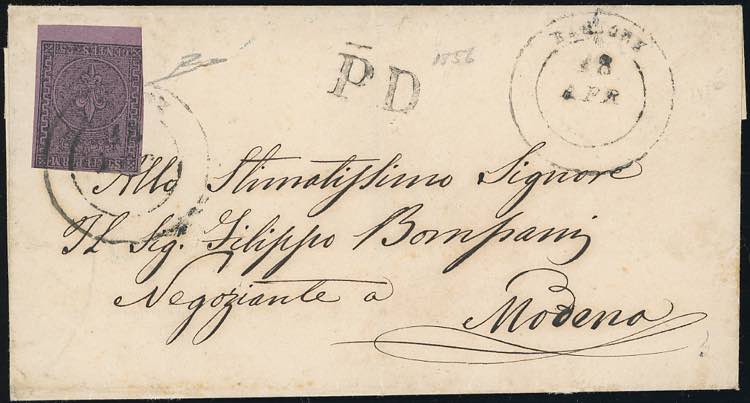 P D
1856
18
APR
Allo Stimatissimo Signore
Il Sig. Filippo Bompani
Negoziante a
Modena